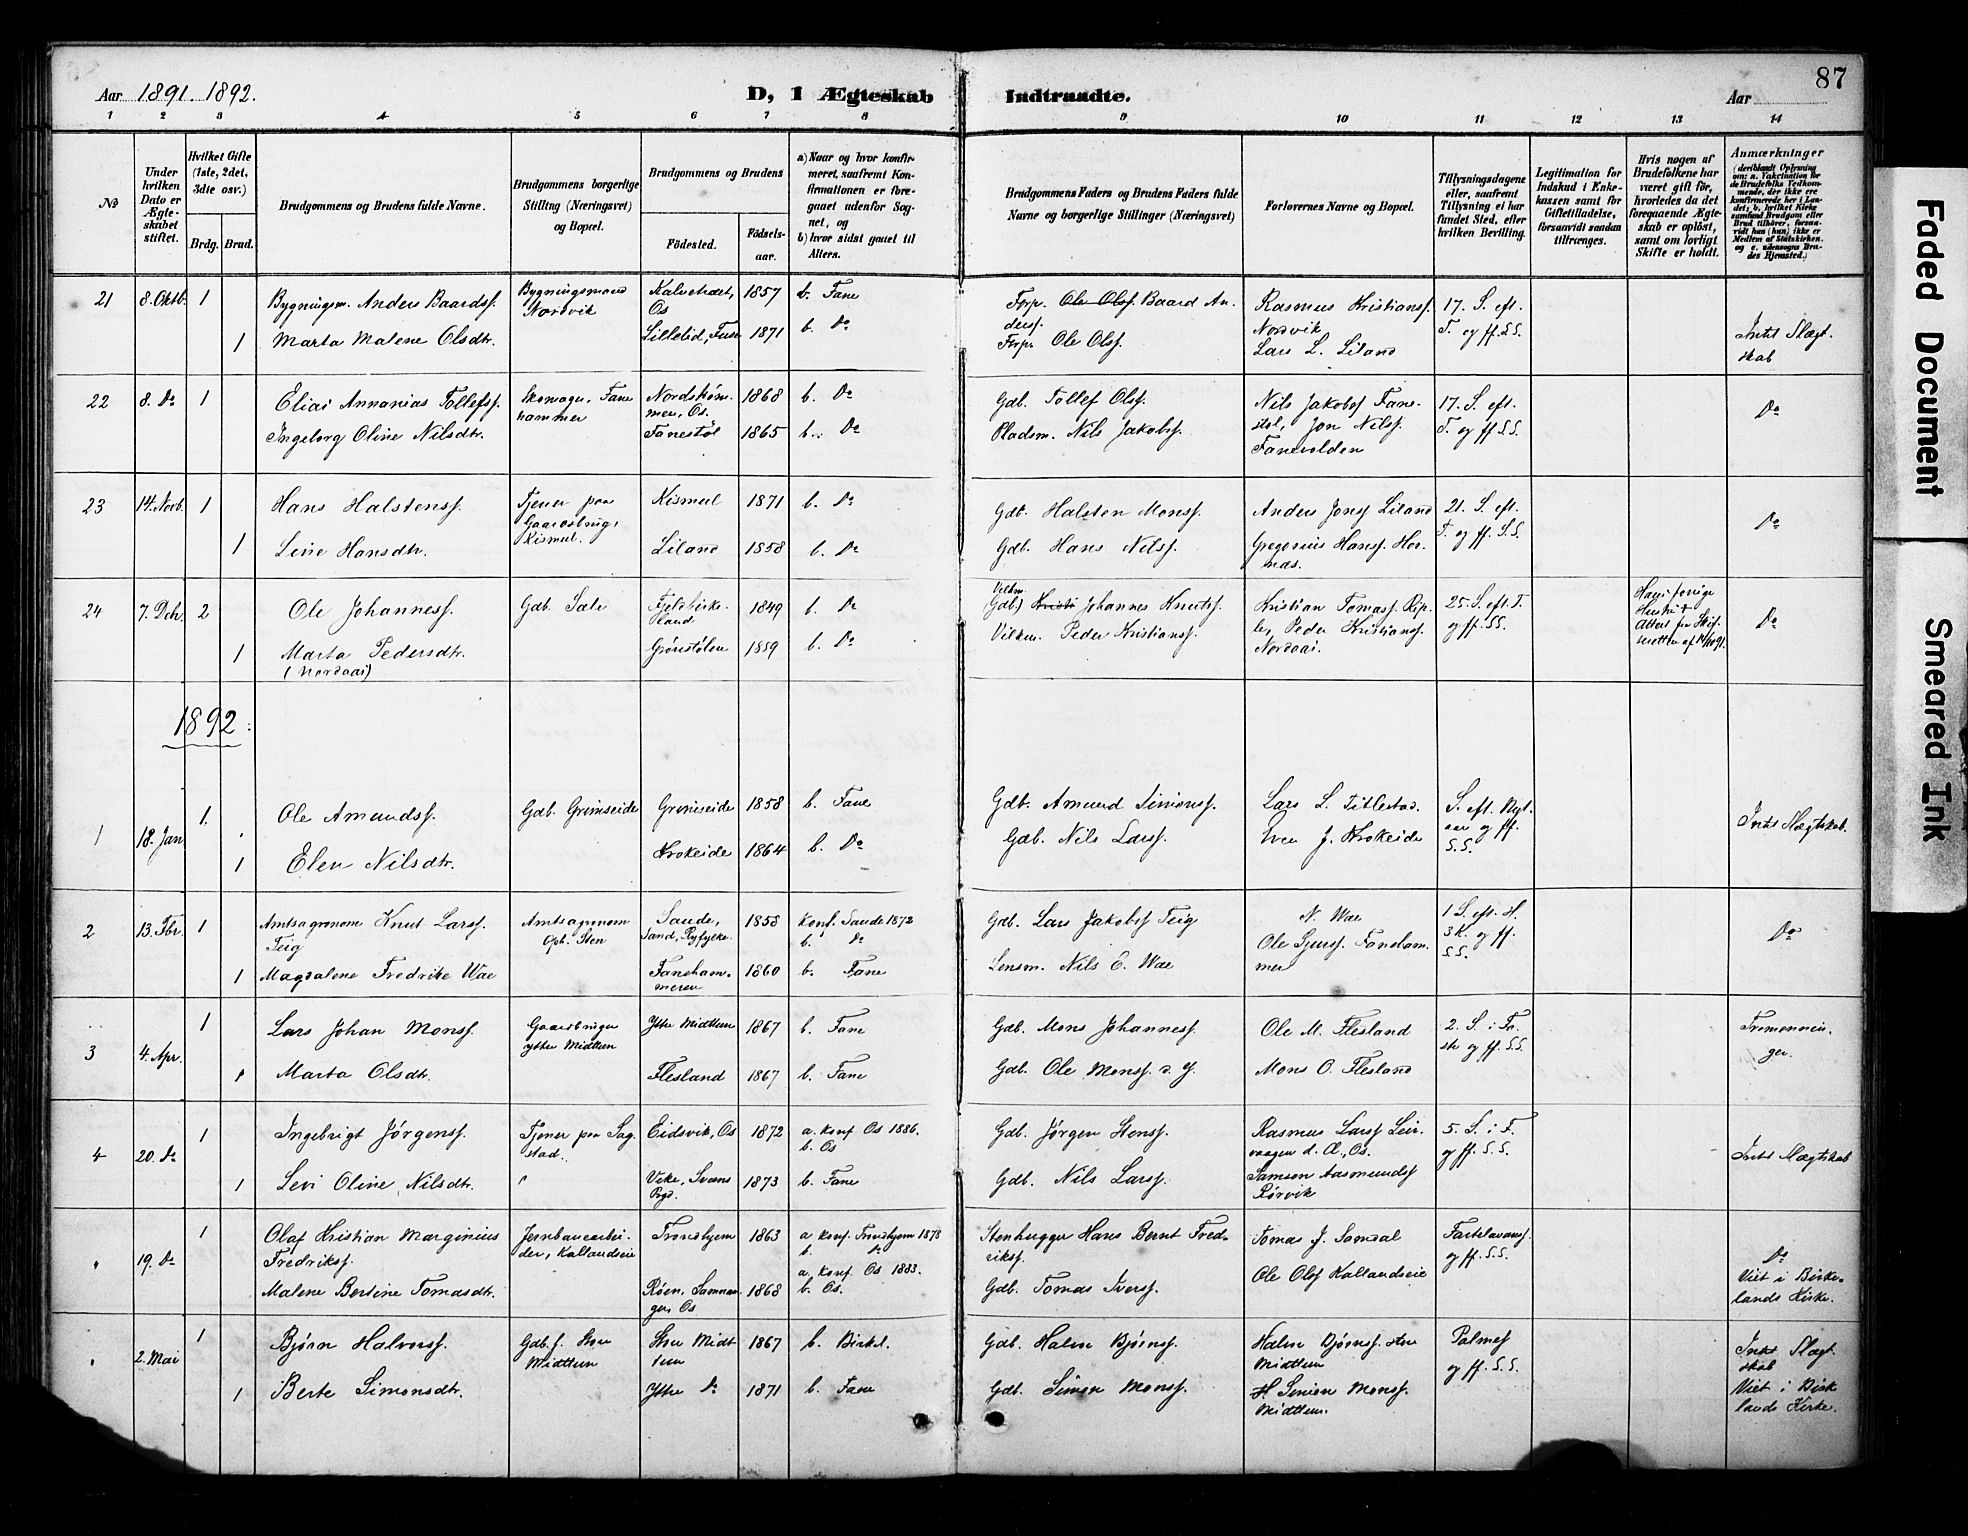 87
Aar 1891. 1892.
D, 1 Ægteskab Indtraadte.
Aar
1 2 3 4 5 6 7 8 9 10 11 12 13 14
No
Under hvilken Dato er Ægteskabet stiftet.
Hvilket Gifte (1ste, 2det, 3die osv.)
Brdg. Brud.
Brudgommens og Brudens fulde Navne.
Brudgommens borgerlige Stilling (Næringsvei) og Bopæl.
Brudgommens og Brudens
Födested. Födselsaar.
a) Naar og hvor konfirmeret, saafremt Konfirmationen er foregaaet udenfor Sognet, og
b) hvor sidst gaaet til Alters.
Brudgommens Faders og Brudens Faders fulde Navne og borgerlige Stillinger (Næringsvei)
Forlovernes Navne og Bopæl.
Tillysningsdagene eller, saafremt Tillysning ei har fundet Sted, efter hvilken Bevilling.
Legitimation for Indskud i Enkekassen samt for Giftetilladelse, forsaavidt saadan tiltrænges.
Hvis nogen af Brudefolkene har været gift för, hvorledes da det foregaaende Ægteskab er oplöst, samt om lovligt Skifte er holdt.
Anmærkninger
21 8. Oktb. 1 Bygningsm. Anders Baardsf. Bygningsmand Nordvik Kalvetræet, Os 1857 b. Fane Forp. Ole Olsf. Baard Andersf. Rasmus Kristiansf. Nordvik 17. S. eft. T. og ff. S.S.
1 Marta Malene Olsdtr. Lillelid, Fuse 1871 b. Do Forp. Ole Olsf. Lars L. Liland Intet Slægtskab
22 8. Do 1 Elias Annanias Tollefsf. Skomager, Fanehammer Nordstrømmen, Os. 1868 b. Do Gdb. Tollef Olsf. Nils Jakobsf Fanestøl, Jon Nilsf. Fanevolden 17. S. eft. T. og ff S.S. Do
Ingeborg Oline Nilsdtr. Fanestøl 1865 b. Do Pladsm. Nils Jakobsf.
23 14. Novb. 1 Hans Halstensf. Tjener paa Gaardsbrug, Kismul. Kismul 1871 b. Do Gdb. Halsten Monsf. Anders Jonsf Liland 21. S. eft. T. og ff. S.S. Do
1 Line Hansdtr. Liland 1858 b. Do Gdb. Hans Nilsf. Gregorius Hansf. Hornæs.
24 7. Dcbr. 2 Ole Johannesf. Gdb. Sæle Fjeldbirkeland 1849 b. Do Gdb) Johannes Knutsf. Kristian Tomasf. Ripler, Peder Kristiansf. Nordaas. 25. S. eft. T. og ff. S.S. Hans forrige Hustru † Attest fra Skifteretten Do
1 Marta Pedersdtr. (Nordaas) Grønstølen 1859 b. Do Vilkm. Peder Kristiansf.
1892
1 18. Jan 1. Ole Amundsf. Gdb. Grimseide Grimseide 1858 b. Fane Gdb. Amund Simonsf. Lars L. Titlestad. S. eft. Nytaar og ff. S.S.
1 Elen Nilsdtr. Krokeide 1864 b. Do Gdb. Nils Larsf. Iver J. Krokeide Intet Slægtskab.
2 13. Fbr. 1 Amtsagronom Knut Larsf. Teig Amtsagronom Oph. Sten Saude, Sand, Ryfylke. 1858 Konf. Saude 1872 b. Do Gdb. Lars Jakobsf Teig N. Wae 1 S. eft. H. 3 K. og ff. S.S. Do
1 Magdalene Fredrike Wae Fanehammeren 1860 b. Fane Lensm. Nils E. Wae Ole Sjursf. Fanehammer
3 4. Apr. 1 Lars Johan Monsf. Gaardbruger ytre Midttun Ytre Midttun 1867 b. Fane Gdb. Mons Johannesf. Ole M. Flesland 2. S. i Faste og ff. S.S. Tremenninger.
1 Marta Olsdtr. Flesland 1867 b. Fane Gdb. Ole Monsf. d. y. Mons O. Flesland
4 20. Do 1 Ingebrigt Jørgensf. Tjener paa Sagstad. Eidsvik, Os 1872 a. Konf Os 1886. b. Os Gdb. Jørgen Stensf. Rasmus Larsf Leirvaagen d. Æ., Os. 5. S. i F. og ff. S.S. Intet Slægtskab
1 Levi Oline Nilsdtr. Vike, Svens Pgd. 1873 b. Fane Gdb. Nils Larsf. Samson Aasmundsf Rørvik
" 19. Do 1 Olaf Kristian Marginius Fredriksf. Jernbanearbeider, Kallandseie Trondhjem 1863 a Konf. Trondhjem 1878 b. Do Stenhugger Hans Bernt Fredriksf. Tomas J. Samdal Fastelavnsf. og ff. S.S. Do
Malene Bertine Tomasdtr. Røen, Samnanger, Os 1868 a. Konf. Os 1883. b. Os. Gdb. Tomas Iversf. Ole Olsf Kallandseie Viet i Birkelands Kirke.
" 2. Mai 1 Bjørn Halvorsf. Gdb. f. Store Midttun Store Midttun 1867 b. Birkel. Gdb. Halvor Bjørnsf. Halvor Bjørnsf. store Midttun Palmes og ff. S.S. Intet Slægtskab
1 Berte Simonsdtr. Ytre Do 1871 b. Fane Gdb. Simon Monsf. Simon Monsf. Midttun. Viet i Birklands Kirke.
Faded Document
Smeared Ink